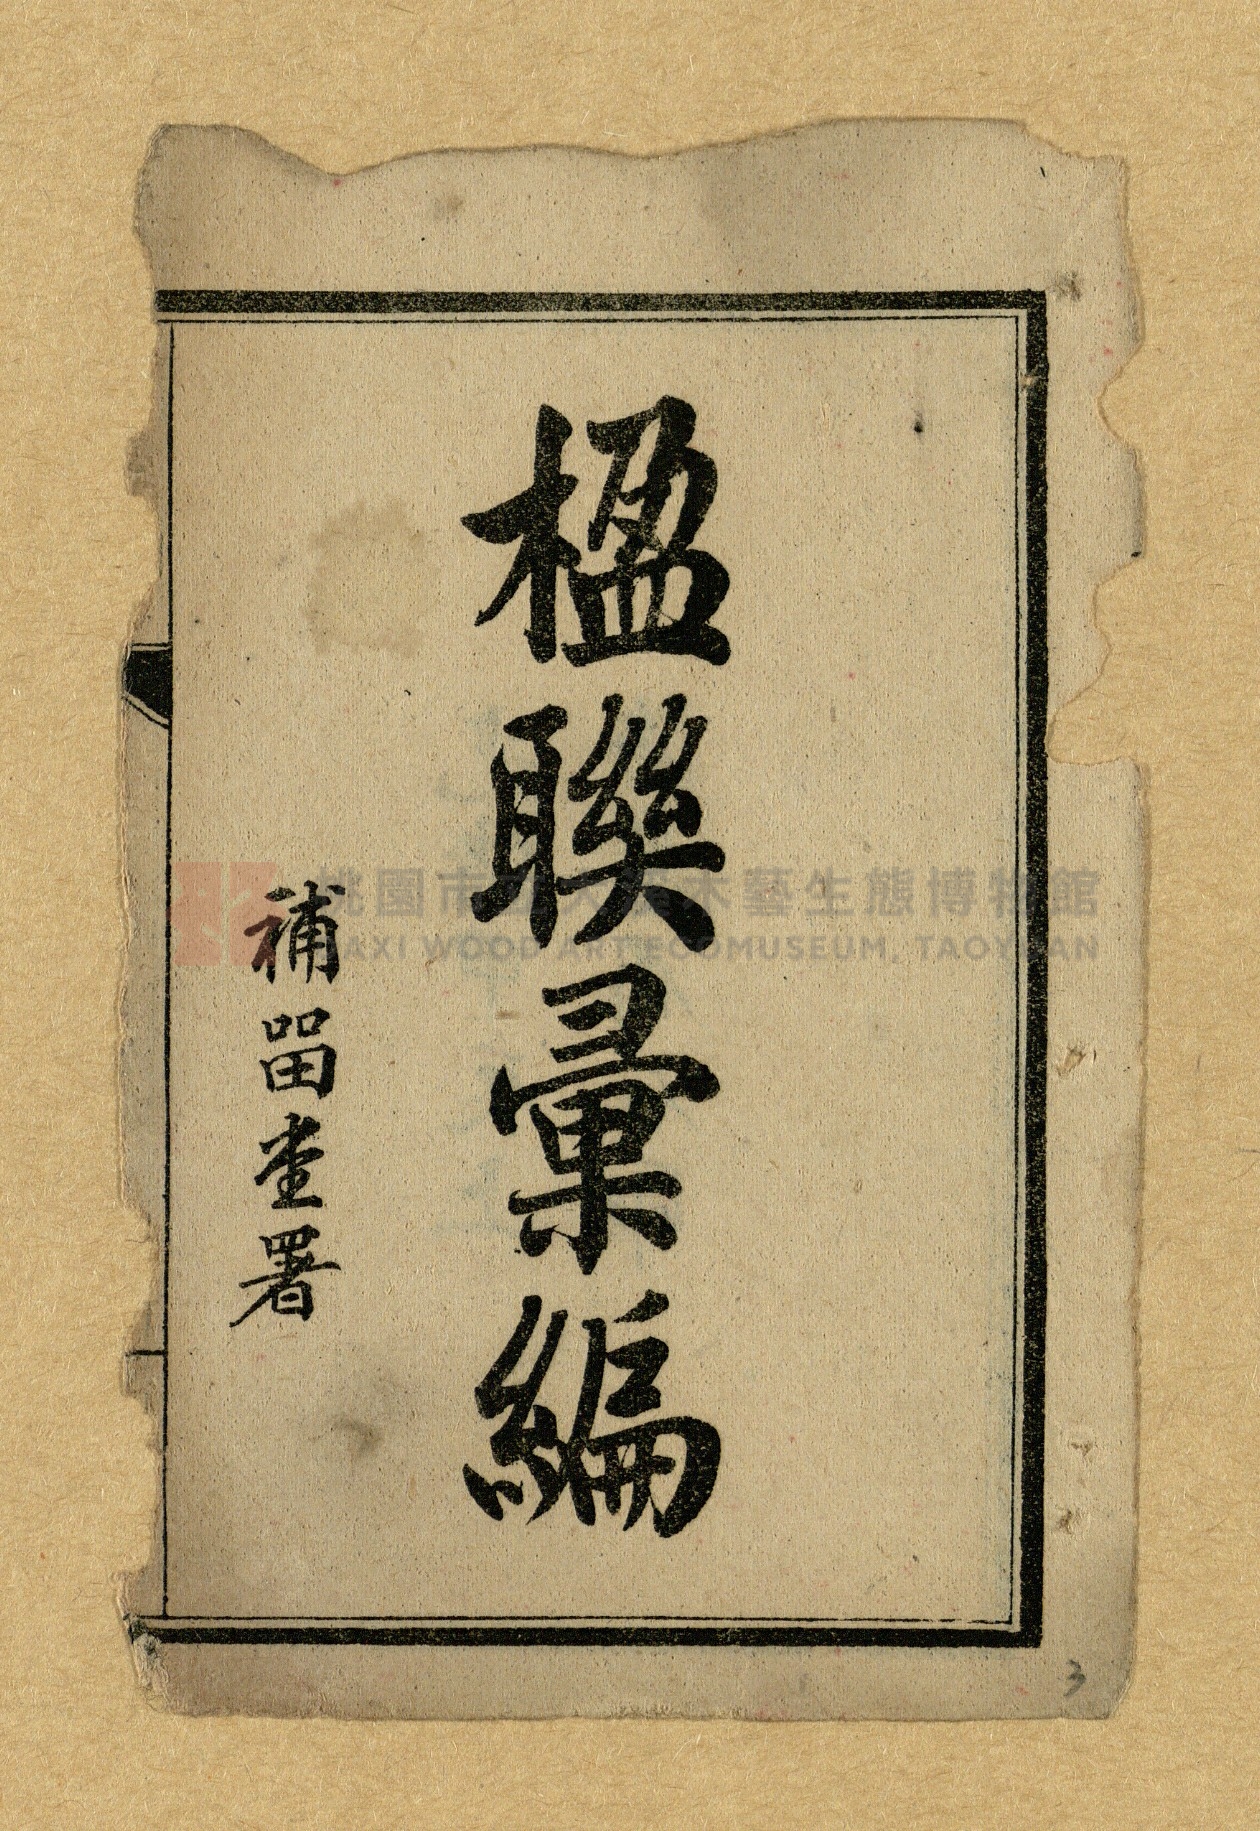 楹聯彙編
補畱堂署
桃園市立大溪木藝生態博物館
DAXI WOOD ART ECOMUSEUM, TAOYUAN
3